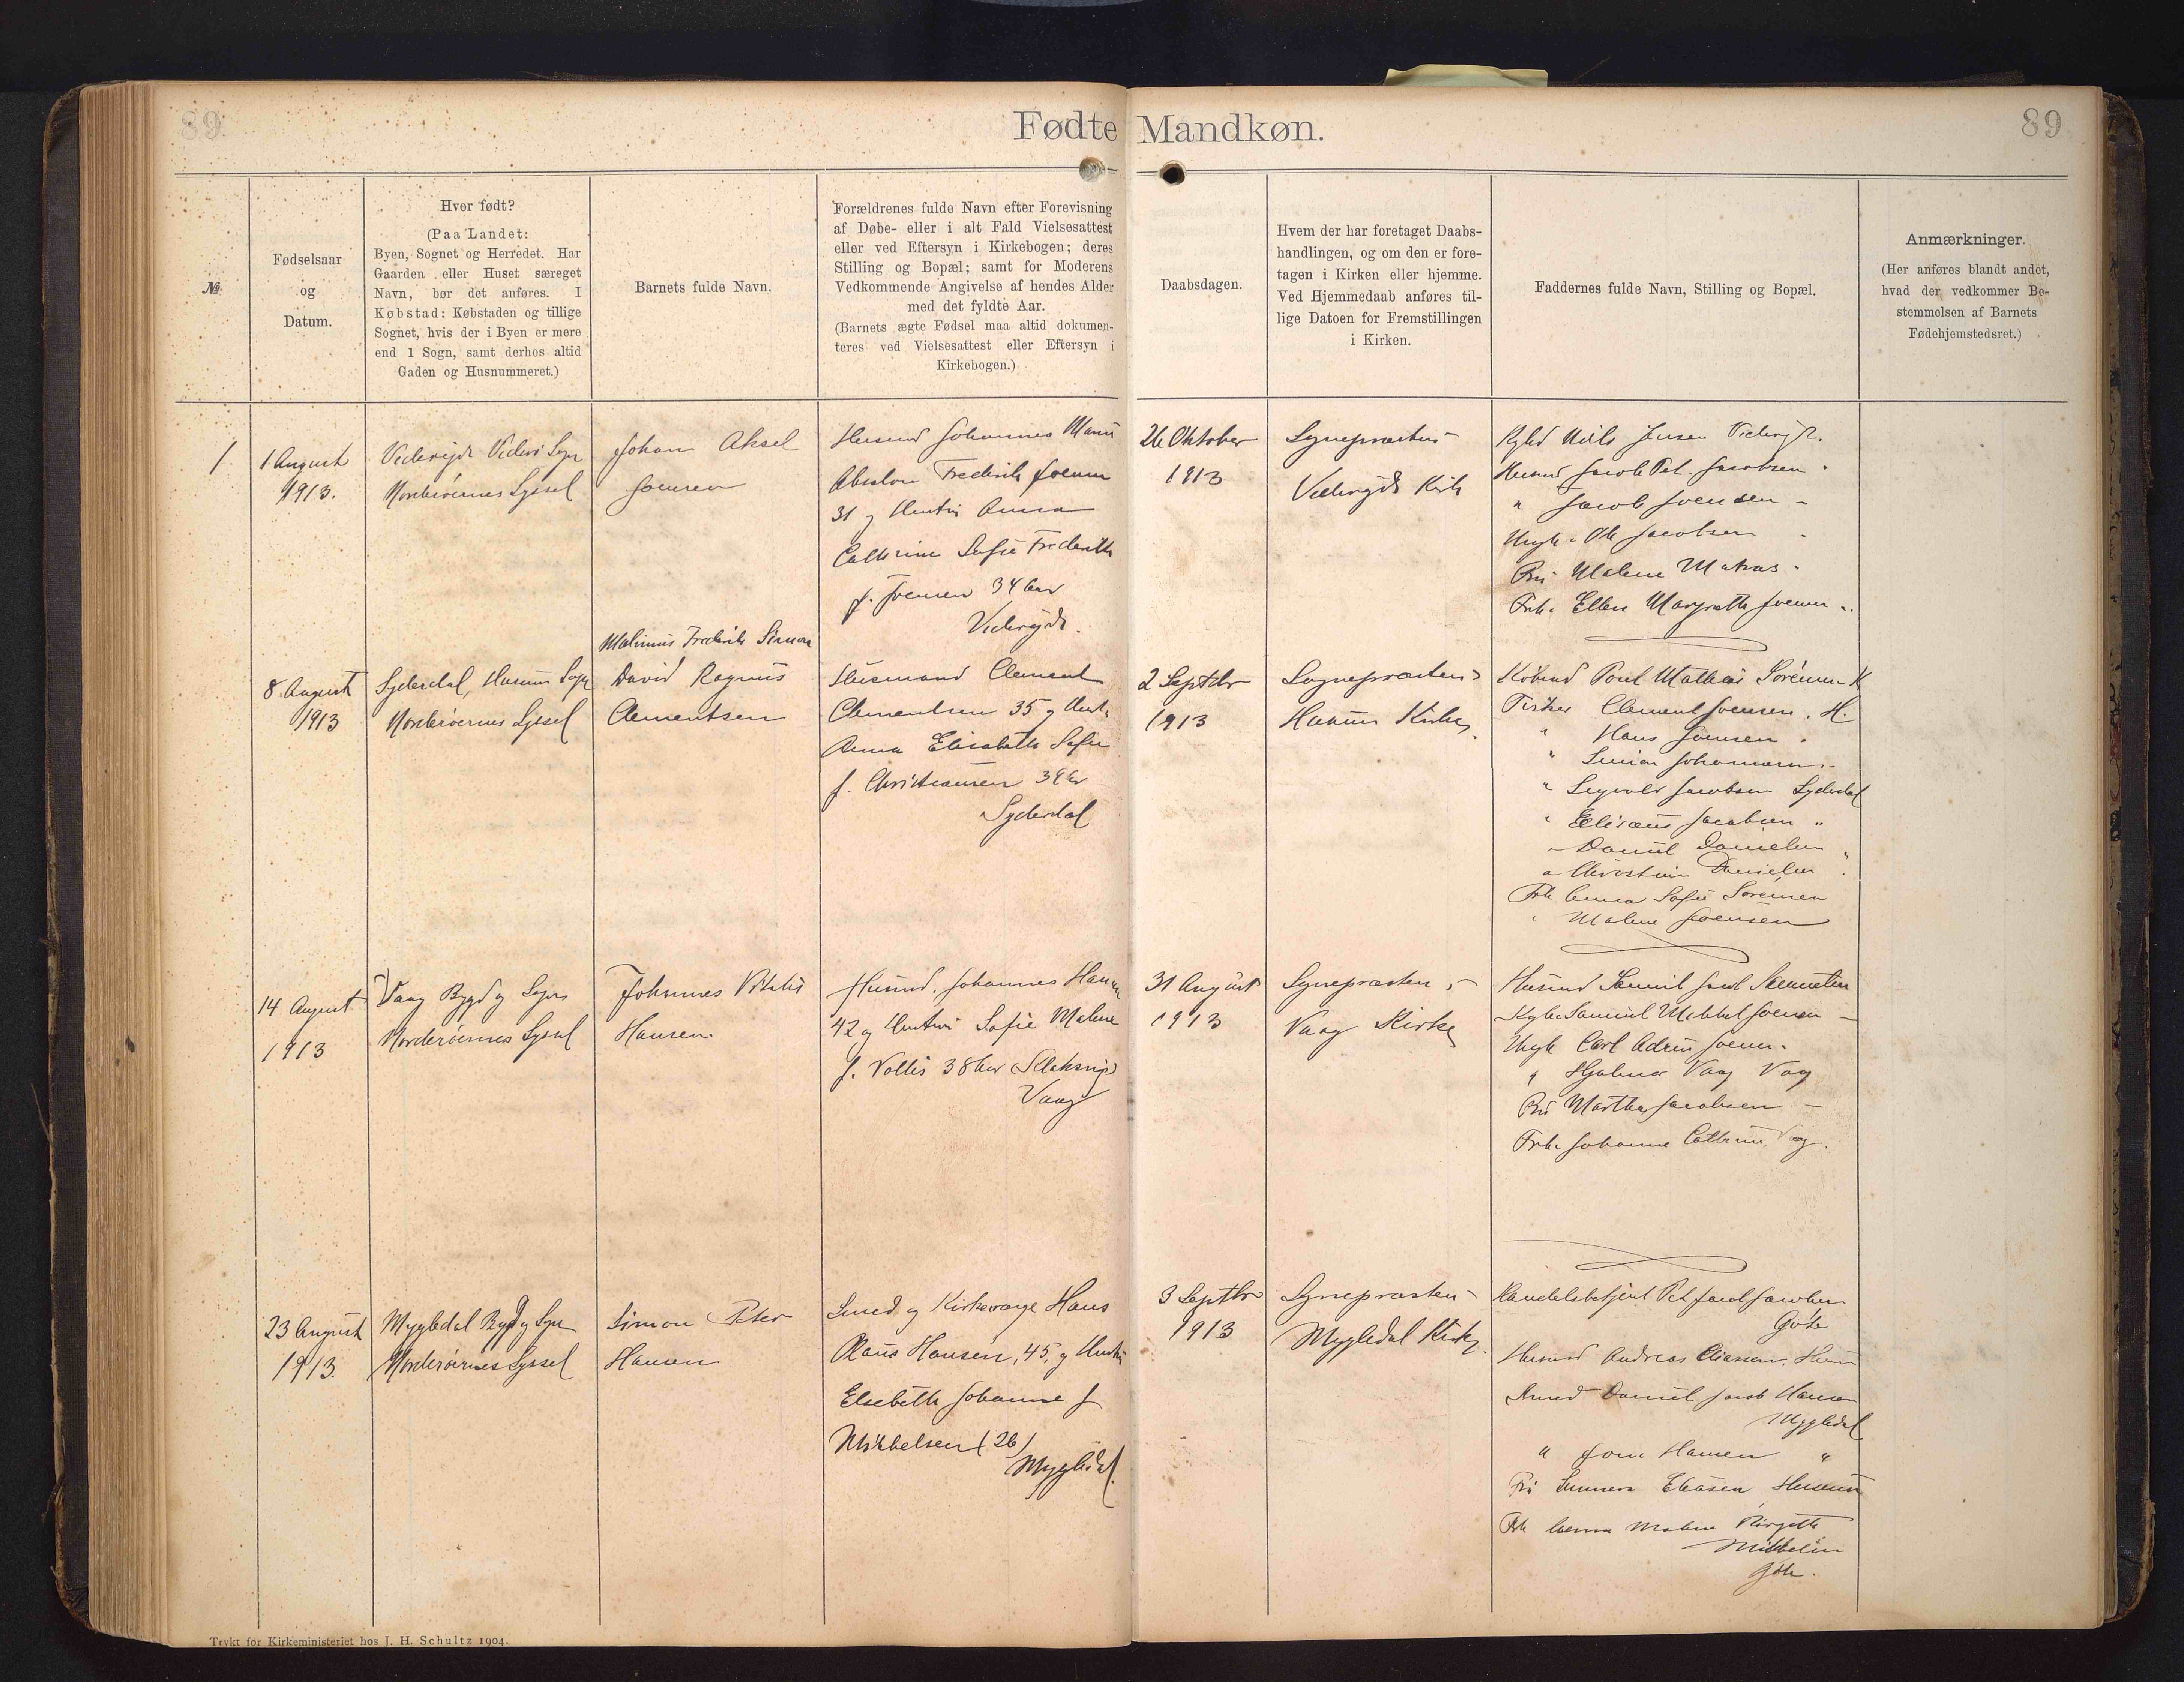 89
Fødte Mandkøn.
89
№
Fødselsaar
og
Datum.
Hvor født?
(Paa Landet:
Byen, Sognet og Herredet. Har
Gaarden eller Huset særeget
Navn, bør det anføres. I
Købstad: Købstaden og tillige
Sognet, hvis der i Byen er mere
end 1 Sogn, samt derhos altid
Gaden og Husnummeret.)
Barnets fulde Navn.
Forældrenes fulde Navn efter Forevisning
af Døbe- eller i alt Fald Vielsesattest
eller ved Eftersyn i Kirkebogen; deres
Stilling og Bopæl; samt for Moderens
Vedkommende Angivelse af hendes Alder
med det fyldte Aar.
(Barnets ægte Fødsel maa altid dokumen-
teres ved Vielsesattest eller Eftersyn i
Kirkebogen.)
Daabsdagen.
Hvem der har foretaget Daabs-
handlingen, og om den er fore-
tagen i Kirken eller hjemme.
Ved Hjemmedaab anføres til-
lige Datoen for Fremstillingen
i Kirken.
Faddernes fulde Navn, Stilling og Bopæl.
Anmærkninger.
(Her anføres blandt andet,
hvad der vedkommer Be-
stemmelsen af Barnets
Fødehjemstedsret.)
1
1 August
1913.
Viderejde Viderø Sogn
Norderøernes Syssel
Johan Aksel
Joensen
Husmd Johannes
Absalon Frederik Joensen
31 og Hustru Anna
Cathrine Sofie Frederikke
f. Joensen 34 Aar
Viderejde.
26 Oktober
1913
Sognepræsten
Viderejde Kirke
Niels Jensen Viderejde.
Husmd Jacob Pet. Jacobsen "
" Jacob Joensen "
Ole Jacobsen
Malene Matras "
Frk. Ellen Margrethe Joensen "
8. August
1913
Syderdal, Husum Sogn
Norderøernes Syssel
Malinus Frederik Simon
David Ragnus
Clementsen
Husmand Clement
Clementsen 35 og Hustr.
Anna Elisabeth Sofie
f. Christiansen 39 Ar
Syderdal
2 Septbr
1913
Sognepræsten
Husum Kirke
Købmd Poul Mathias Sørensen K
Fisker Clement Joensen. H.
" Hans Joensen "
" Simon Johannesen
" Sigvald Jacobsen Syderdal
" Elisæus Jacobsen "
" Daniel Danielsen "
" Christian Danielsen "
Frk Anna Sofie Sørensen
" Malene Joensen
14 August
1913
Vaag Bygd og Sogn
Norderøernes Syssel
Johannes Vitalis
Hansen.
Husmd. Johannes Hansen
42 og Hustru Sofie Malene
f. Vollis 38 Aar
Vaag
31 August
1913
Sognepræsten
Vaag Kirke
Husmd Samuel Jacob Samuelsen
Samuel Mikkel Joensen
Carl Adrian Joensen
" Hjalmar Vaag Vaag
Martha Jacobsen
Frk. Johanne Cathrine Vaag.
23 August
1913.
Mygledal Bygd og Sogn
Norderøernes Syssel
Simon Peter
Hansen
Smed og Kirkeværge Hans
Claus Hansen, 45, og Hustru
Elsebeth Johanne f
Mikkelsen (26)
Mygledal.
3 Septbr
1913
Sognepræsten
Mygledal Kirke
Handelsbetjent Pet Jacob Jacobsen
Gøte
Husmd Andreas Eliassen, Husum
Smed Daniel Jacob Hansen
Mygledal
" Jona Hansen "
Sunneva Eliasen Husum
Frk Anna Malene Birgitte
Mikkelsen
Gøte.
Trykt for Kirkeministeriet hos J. H. Schultz 1904.